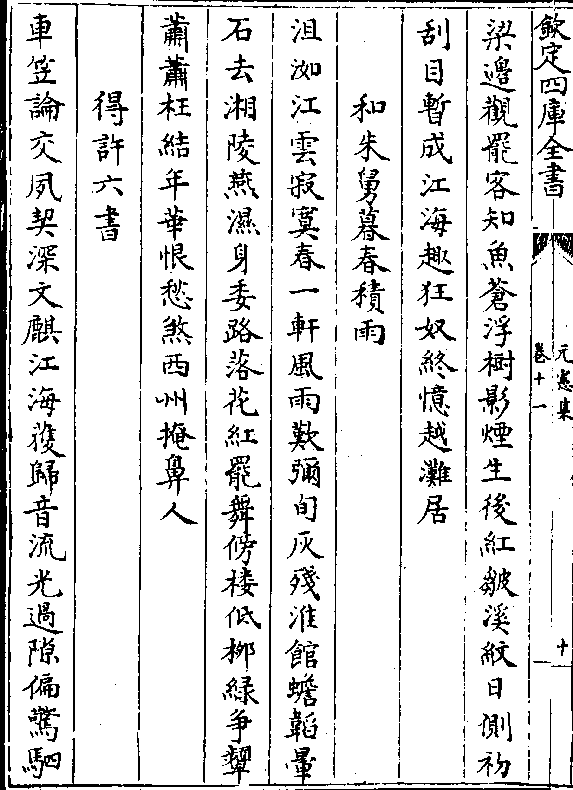 欽定四庫全書
元憲集
卷十一
十一
梁邊觀罷客知魚蒼浮樹影煙生後紅皺溪紋日側初
刮目暫成江海趣狂奴終憶越灘居
和朱舅暮春積雨
沮洳江雲寂寞春一軒風雨歎彌旬灰殘淮館蟾韜暈
石去湘陵燕濕身委路落花紅罷舞傍樓低柳綠爭顰
蕭蕭枉結年華恨愁煞西州掩鼻人
得許六書
車笠論交夙契深文麒江海蒦歸音流光過隙偏驚駟